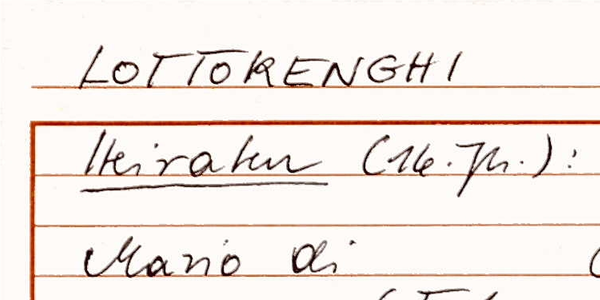 LOTTORENGHI
Heiraten (16. Jh.):
Mario di